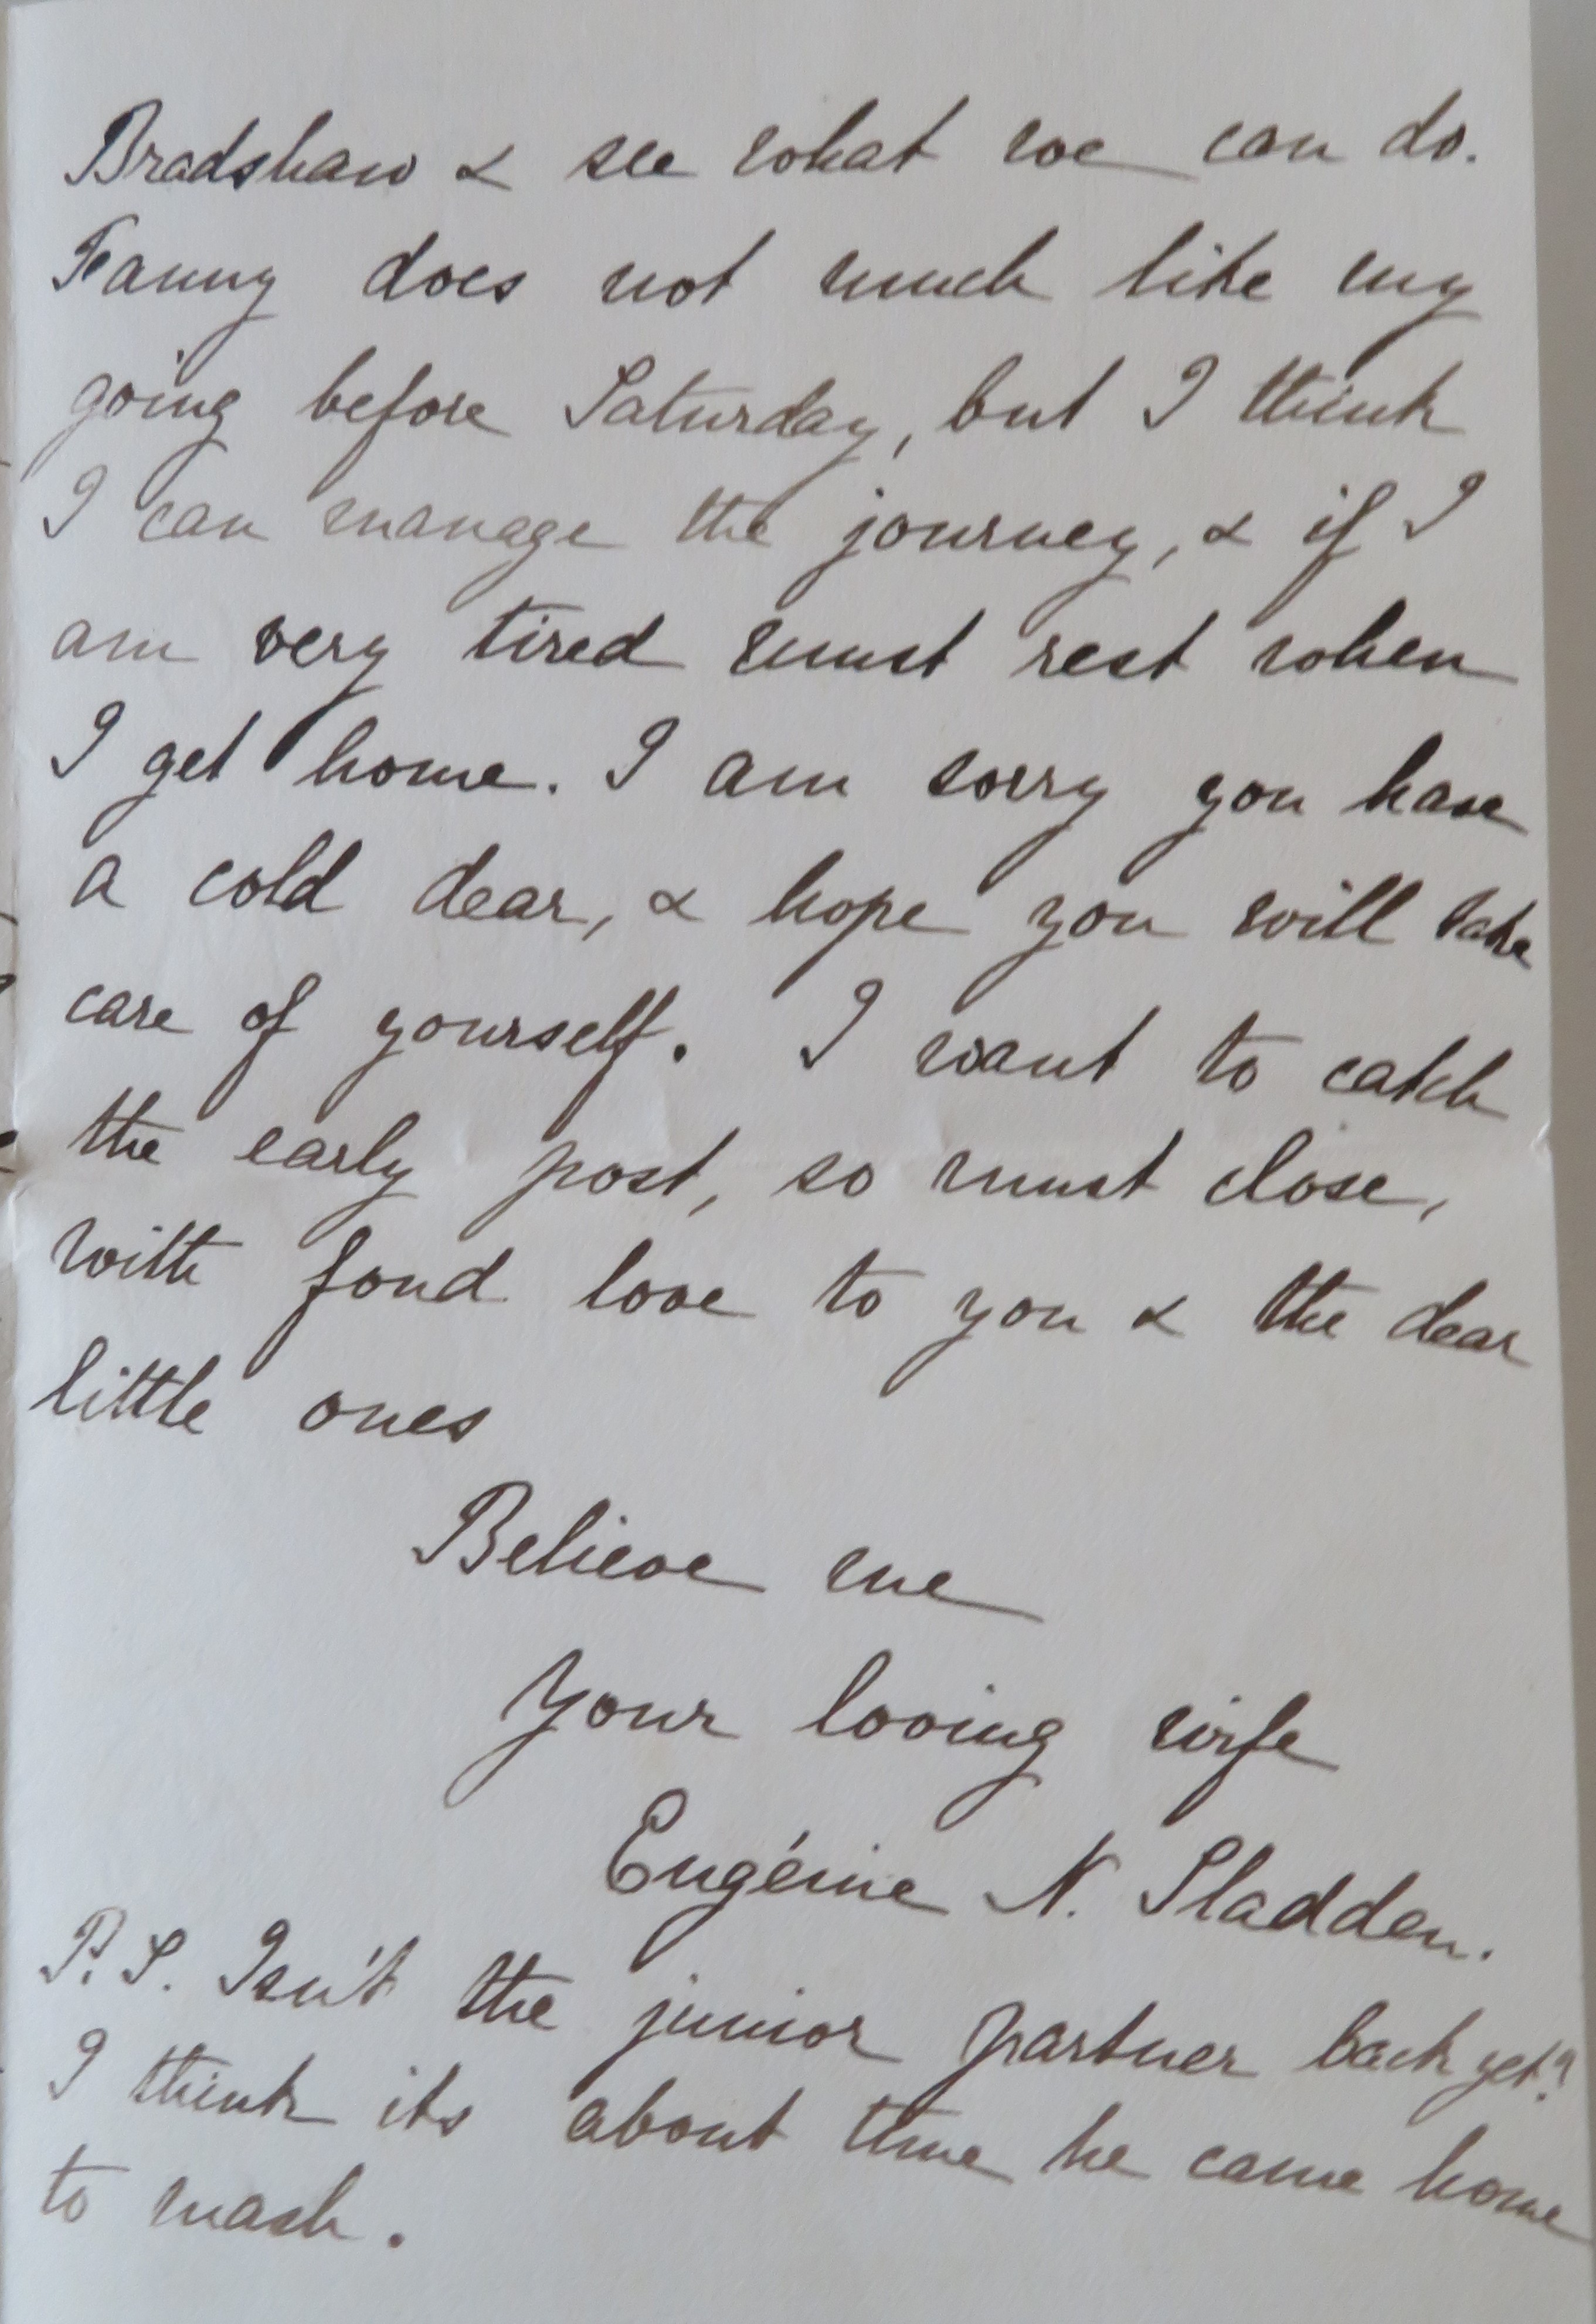 Bradshaw & see what we can do.
Fanny does not much like my
going before Saturday, but I think
I can manage the journey, & if I
am very tired must rest when
I get home. I am sorry you have
a cold dear, & hope you will take
care of yourself. I want to catch
the early post, so must close,
with fond love to you & the dear
little ones
Believe me
Your loving wife
Eugénie N. Sladden.
P.S. Isn't the junior partner back yet?
I think its about time he came home
to wash.